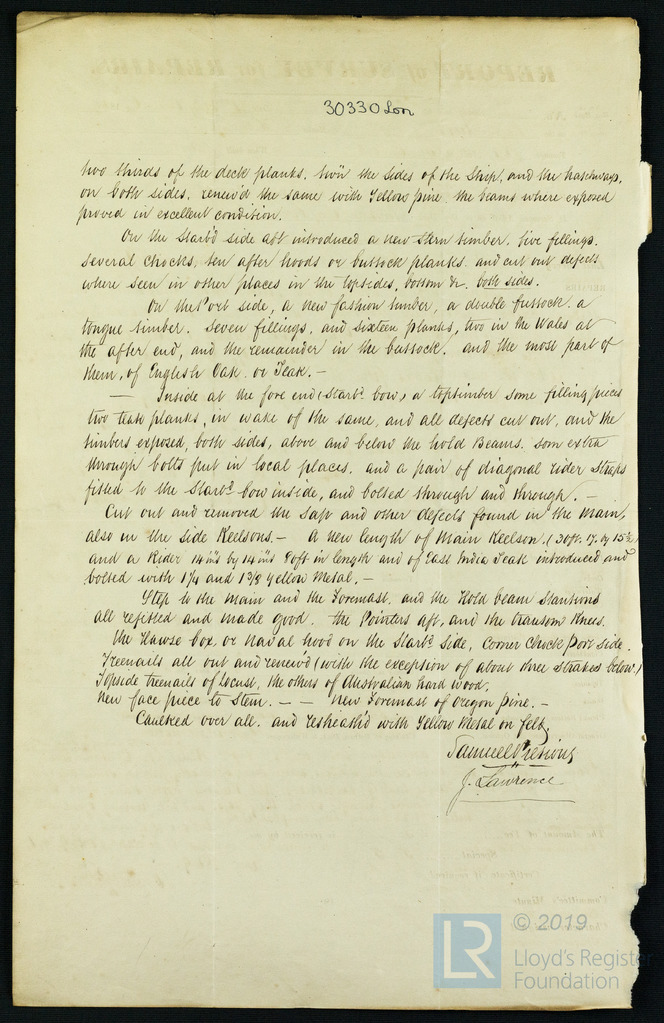 30330 Lon
two thirds of the deck planks. twn the sides of the Ship, and the hatchways,
on both sides, renew'd the same with Yellow pine. the beams where exposed
proved in excellent condition.
On the Starbd side aft introduced a new Stern timber. five fillings.
several chocks, ten after hoods or buttock planks. and cut out defects
where seen in other places in the topsides, bottom &c. both sides.
On the Port side, a new fashion timber, a double futtock. a
tongue timber. seven fillings, and sixteen planks, two in the Wales at
the after end, and the remainder in the buttock. and the most part of
them, of English Oak or Teak. —
— Inside at the fore end (Starbd bow) a toptimber some filling pieces
two teak planks, in wake of the same, and all defects cut out, and the
timbers exposed, both sides, above and below the hold Beams. som extra
through bolts put in local places. and a pair of diagonal rider Straps
fitted to the Starbd bow inside, and bolted through and through. —
Cut out and removed the Sap and other defects found in the Main,
also in the side Keelsons. — A new length of Main Keelson. (30ft. 17. by 15½)
and a Rider 14 ins by 14 ins ft in length and of East India Teak introduced and
bolted with 1¼ and 1⅜ yellow Metal. —
Step to the Main and the Foremast. and the Hold beam Stantions
all refitted and made good. the Pointers aft, and the transom Knees.
the Hawse box, or naval hood on the Starbd Side, corner chock port side.
Treenails all out and renew'd (with the exception of about three strakes below.)
Topside treenails of Locust, the others of Australian hard wood.
New face piece to Stem. — — New Foremast of Oregon pine. —
Caulked over all. and resheath'd with Yellow Metal on felt.
Samuel
J. Lawrence
LR © 2019
Lloyd's Register
Foundation